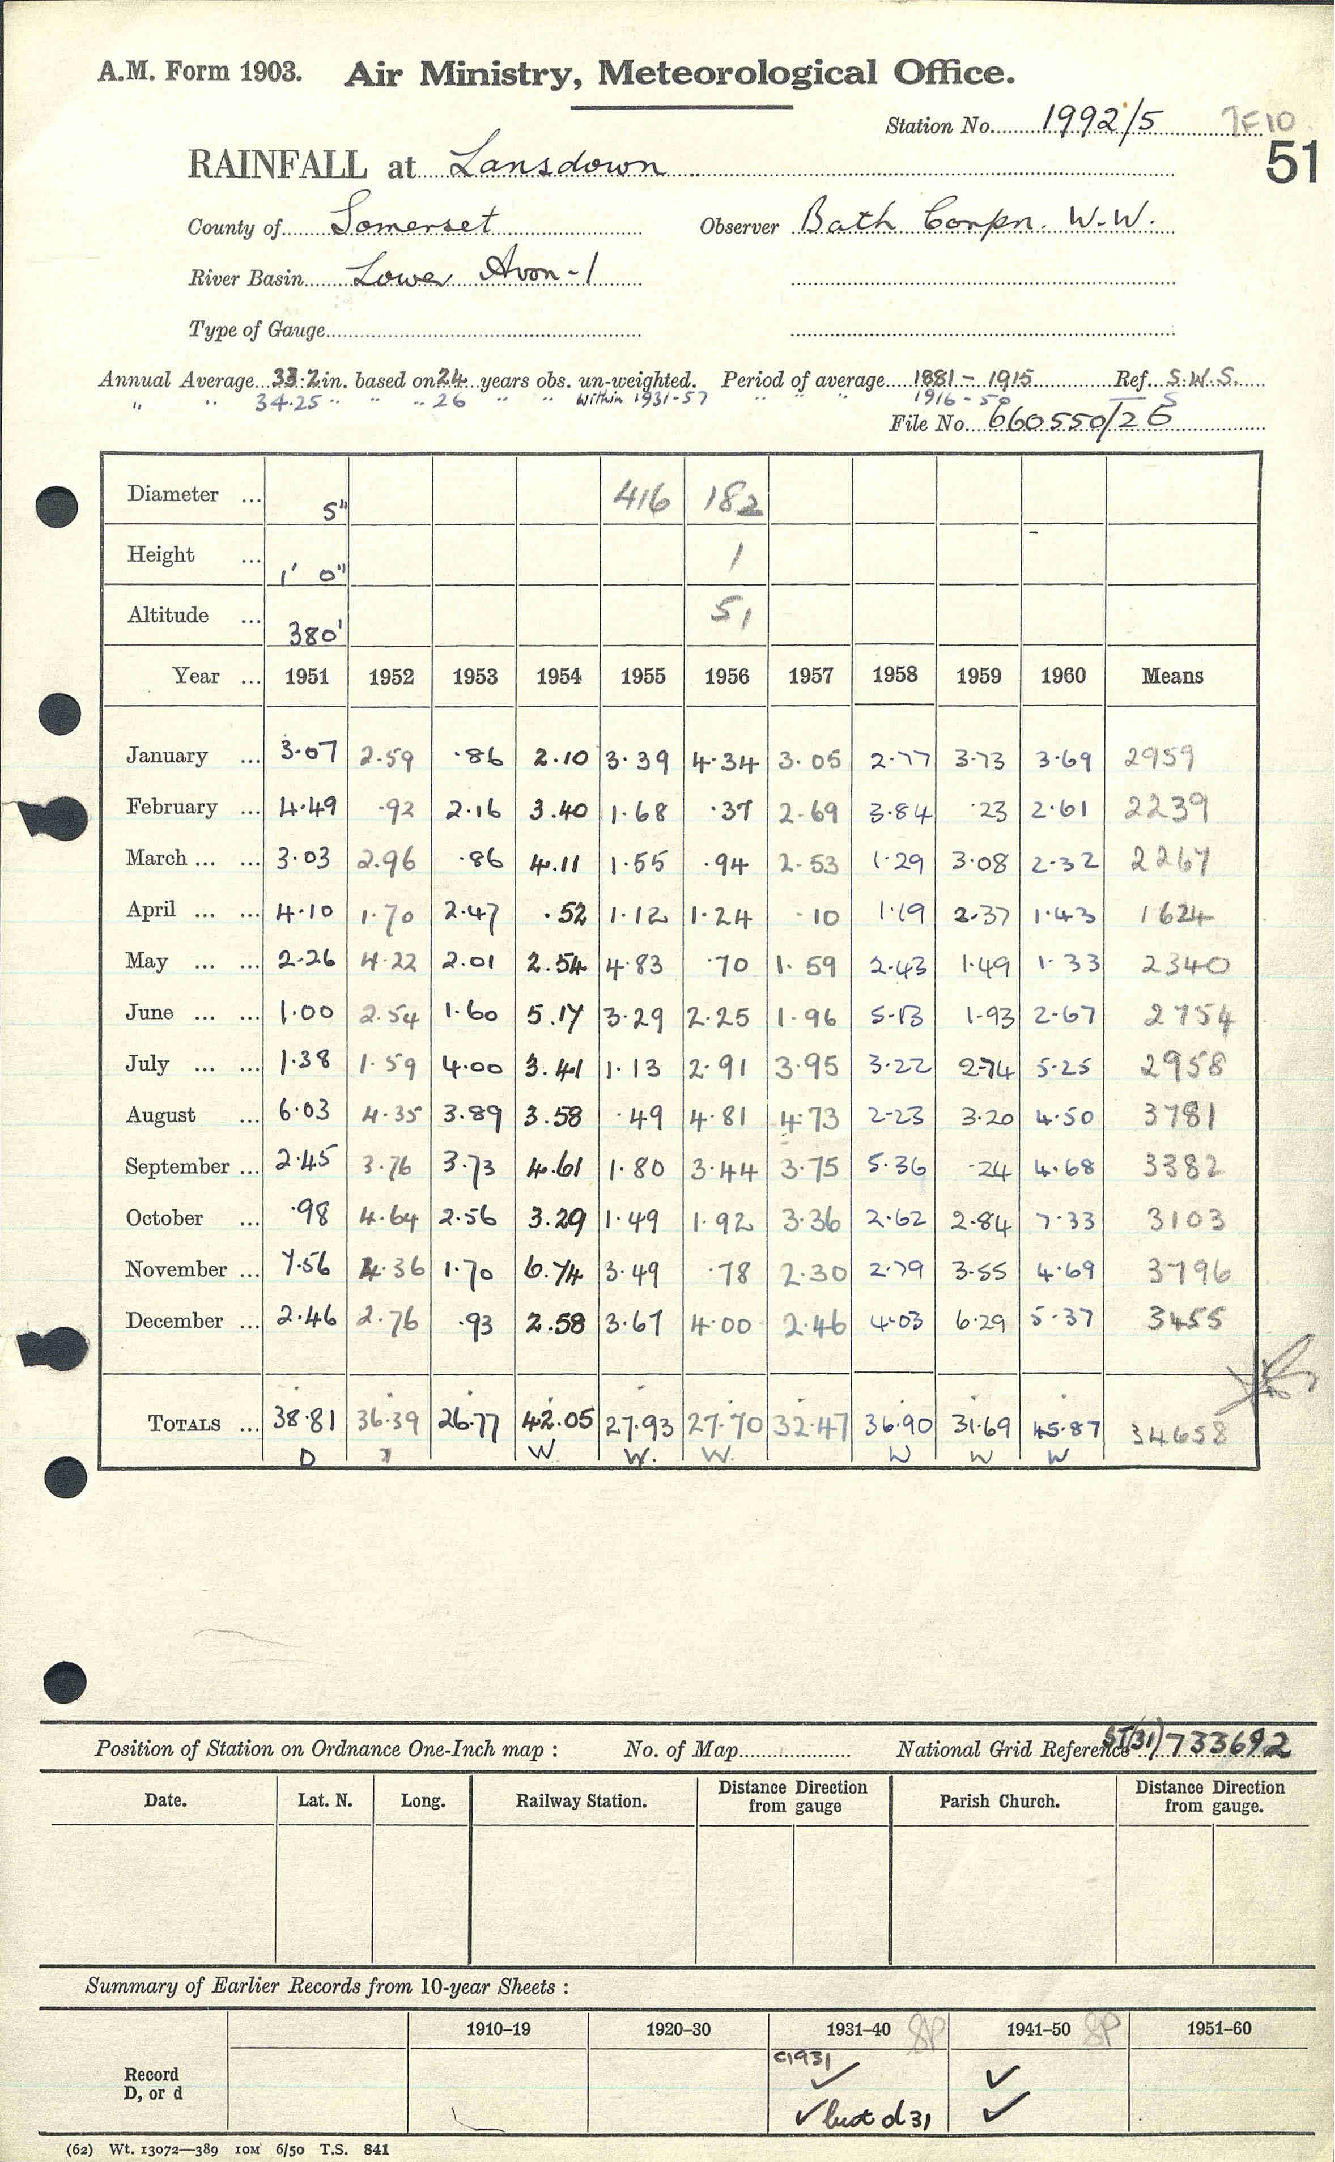 A.M. Form 1903. Air Ministry, Meteorological Office.
Station No. 1992/5 7F10
51
RAINFALL at Lansdown
County of Somerset Observer Bath Corpn. W.W.
River Basin Lower Avon - 1
Type of Gauge
Annual Average 33.2 in. based on 24 years obs. un-weighted. Period of average 1881 - 1915 Ref. S.W.S.
" " 34.25 " " " 26 " " Within 1931-57 " " " 1916-50 S
File No. 660550/26
Diameter ... 5" 416 182
Height ... 1' 0" 1
Altitude ... 380' 51
Year ... 1951 1952 1953 1954 1955 1956 1957 1958 1959 1960 Means
January ... 3.07 2.59 .86 2.10 3.39 4.34 3.05 2.77 3.73 3.69 2959
February ... 4.49 .92 2.16 3.40 1.68 .37 2.69 3.84 .23 2.61 2239
March ... ... 3.03 2.96 .86 4.11 1.55 .94 2.53 1.29 3.08 2.32 2267
April ... ... 4.10 1.70 2.47 .52 1.12 1.24 .10 1.19 2.37 1.43 1624
May ... ... 2.26 4.22 2.01 2.54 4.83 .70 1.59 2.43 1.49 1.33 2340
June ... ... 1.00 2.54 1.60 5.17 3.29 2.25 1.96 5.13 1.93 2.67 2754
July ... ... 1.38 1.59 4.00 3.41 1.13 2.91 3.95 3.22 2.74 5.25 2958
August ... 6.03 4.35 3.89 3.58 .49 4.81 4.73 2.23 3.20 4.50 3781
September ... 2.45 3.76 3.73 4.61 1.80 3.44 3.75 5.36 .24 4.68 3382
October ... .98 4.64 2.56 3.29 1.49 1.92 3.36 2.62 2.84 7.33 3103
November ... 7.56 4.36 1.70 6.74 3.49 .78 2.30 2.79 3.55 4.69 3796
December ... 2.46 2.76 .93 2.58 3.67 4.00 2.46 4.03 6.29 5.37 3455
TOTALS ... 38.81 36.39 26.77 42.05 27.93 27.70 32.47 36.90 31.69 45.87 34658
D W W. W. W W W
Position of Station on Ordnance One-Inch map : No. of Map National Grid Reference ST(31) 733692
Date. Lat. N. Long. Railway Station. Distance Direction from gauge Parish Church. Distance Direction from gauge.
Summary of Earlier Records from 10-year Sheets :
1910–19 1920–30 1931–40 SP 1941–50 SP 1951–60
Record c1931 ✓ ✓
D, or d ✓ but d 31 ✓
(62) Wt. 13072—389 10M 6/50 T.S. 841